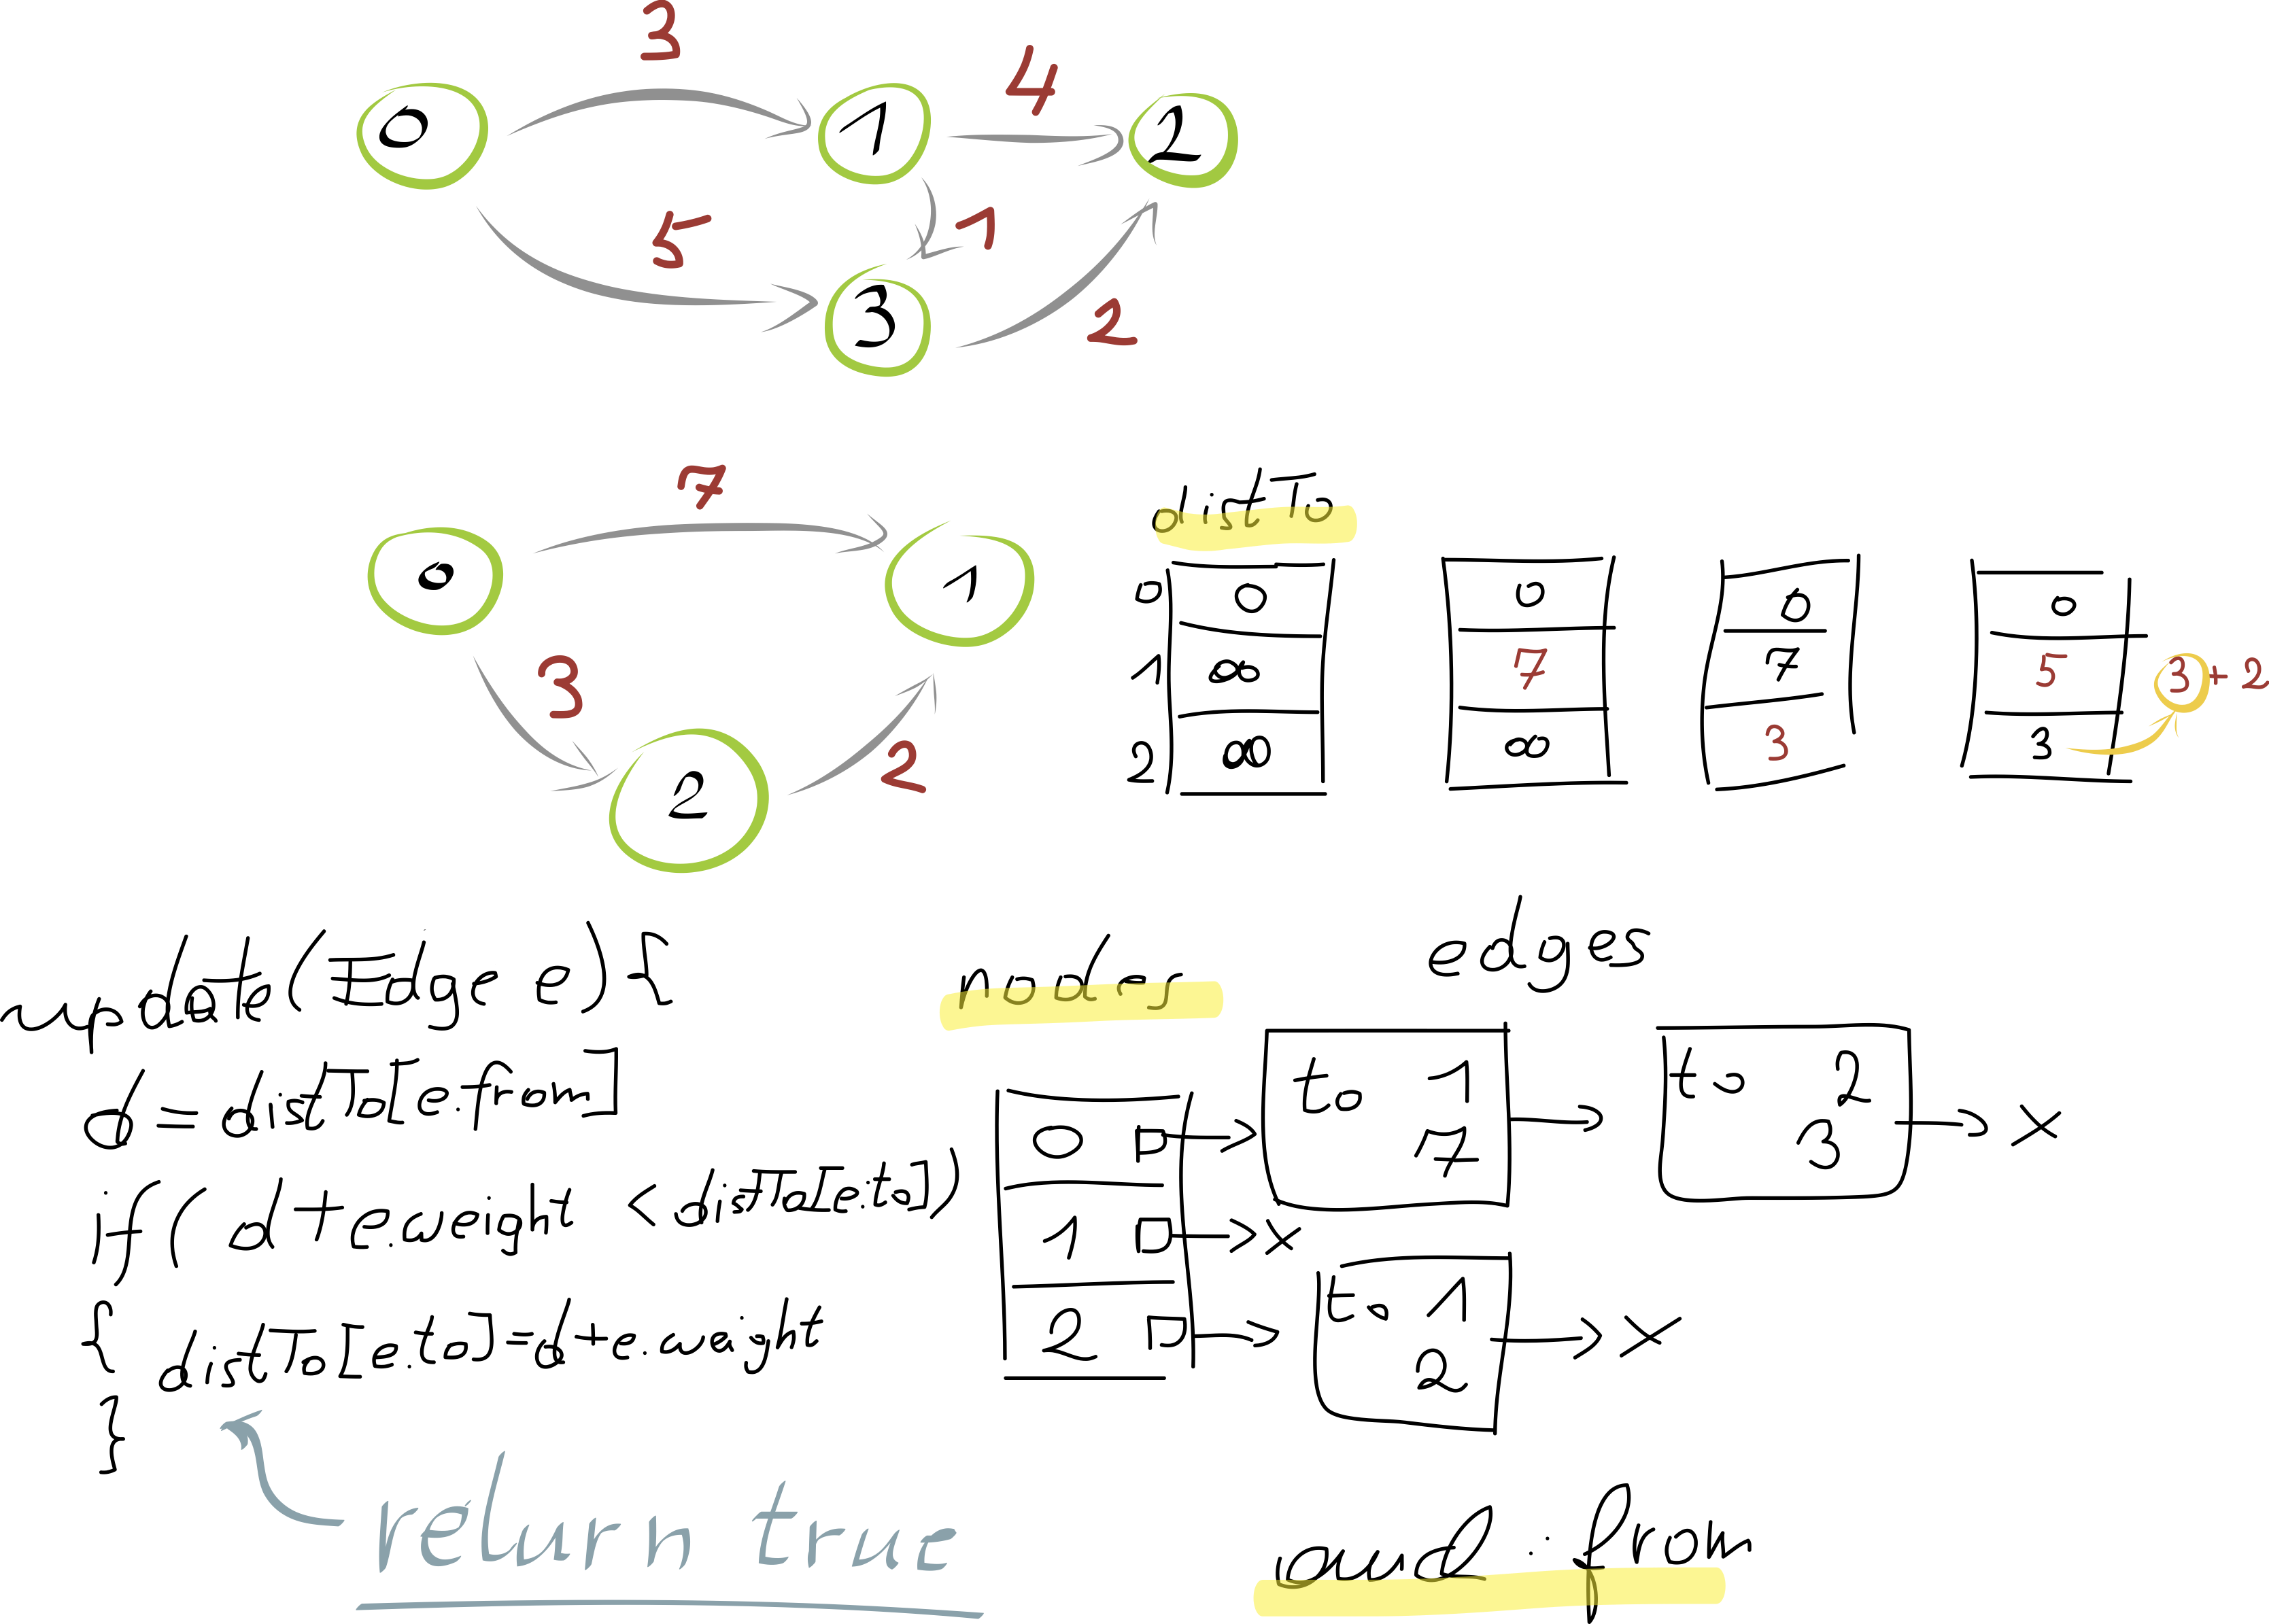 3
4
0 1 2
5 1
3
2
7
0 1
3
2
2
distTo
0 0 0 0 0
1 ∞ 7 7 5 3 + 2
2 ∞ ∞ 3 3
update(Edge e){
d = distTo[e.from]
if( d + e.weight < distTo[e.to])
{
distTo[e.to] = d + e.weight
}
return true
nodes edges
0 to 1 to 2 x
7 3
1 x
2 to 1 x
2
and : from